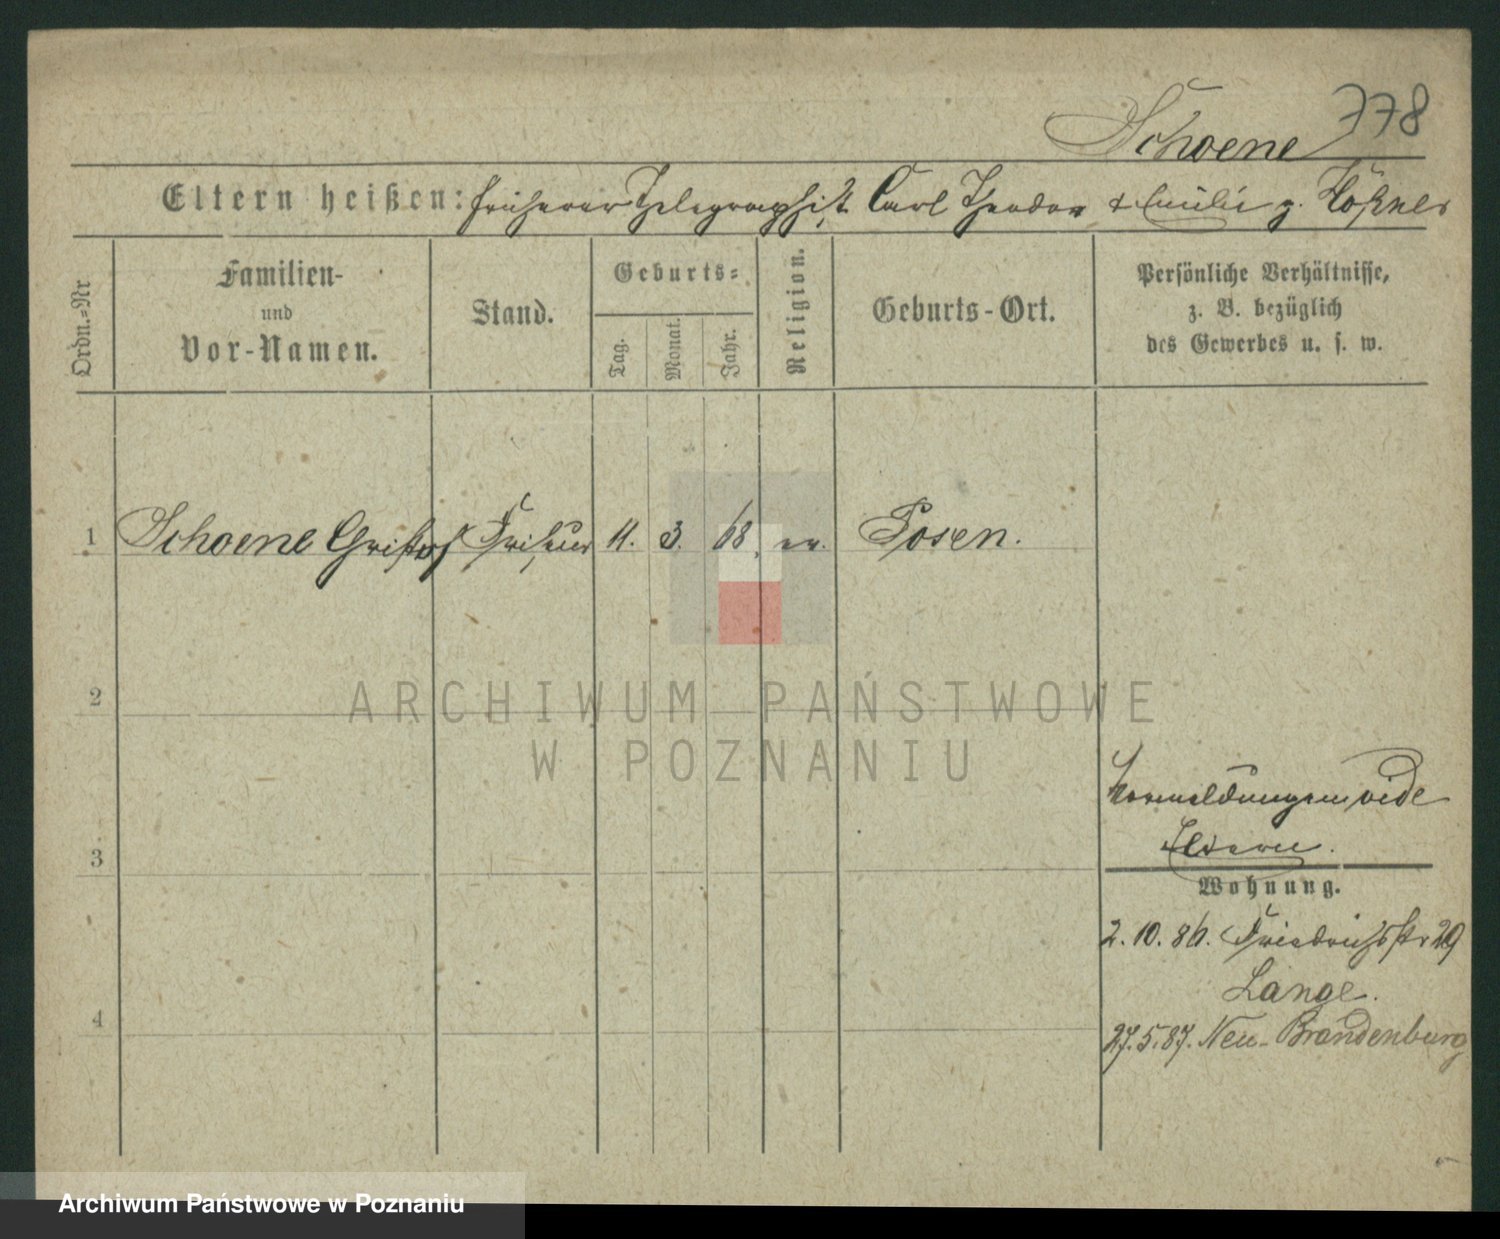 778
Schoene
Eltern heißen: früherer Telegraphist Carl Theodor & Emilie g.
Ordn.=Nr
Familien-
und
Vor-Namen.
Stand.
Geburts=
Tag.
Monat.
Jahr.
Religion.
Geburts-Ort.
Persönliche Verhältnisse,
z. B. bezüglich
des Gewerbes u. s. w.
1 Schoene Friseur 11. 3. 68. ev. Posen.
2
3
4
ARCHIWUM PAŃSTWOWE
W POZNANIU
vide
Eltern.
Wohnung.
2. 10. 86. Friedrichstr 29
Lange.
27. 5. 87. Neu-Brandenburg
Archiwum Państwowe w Poznaniu